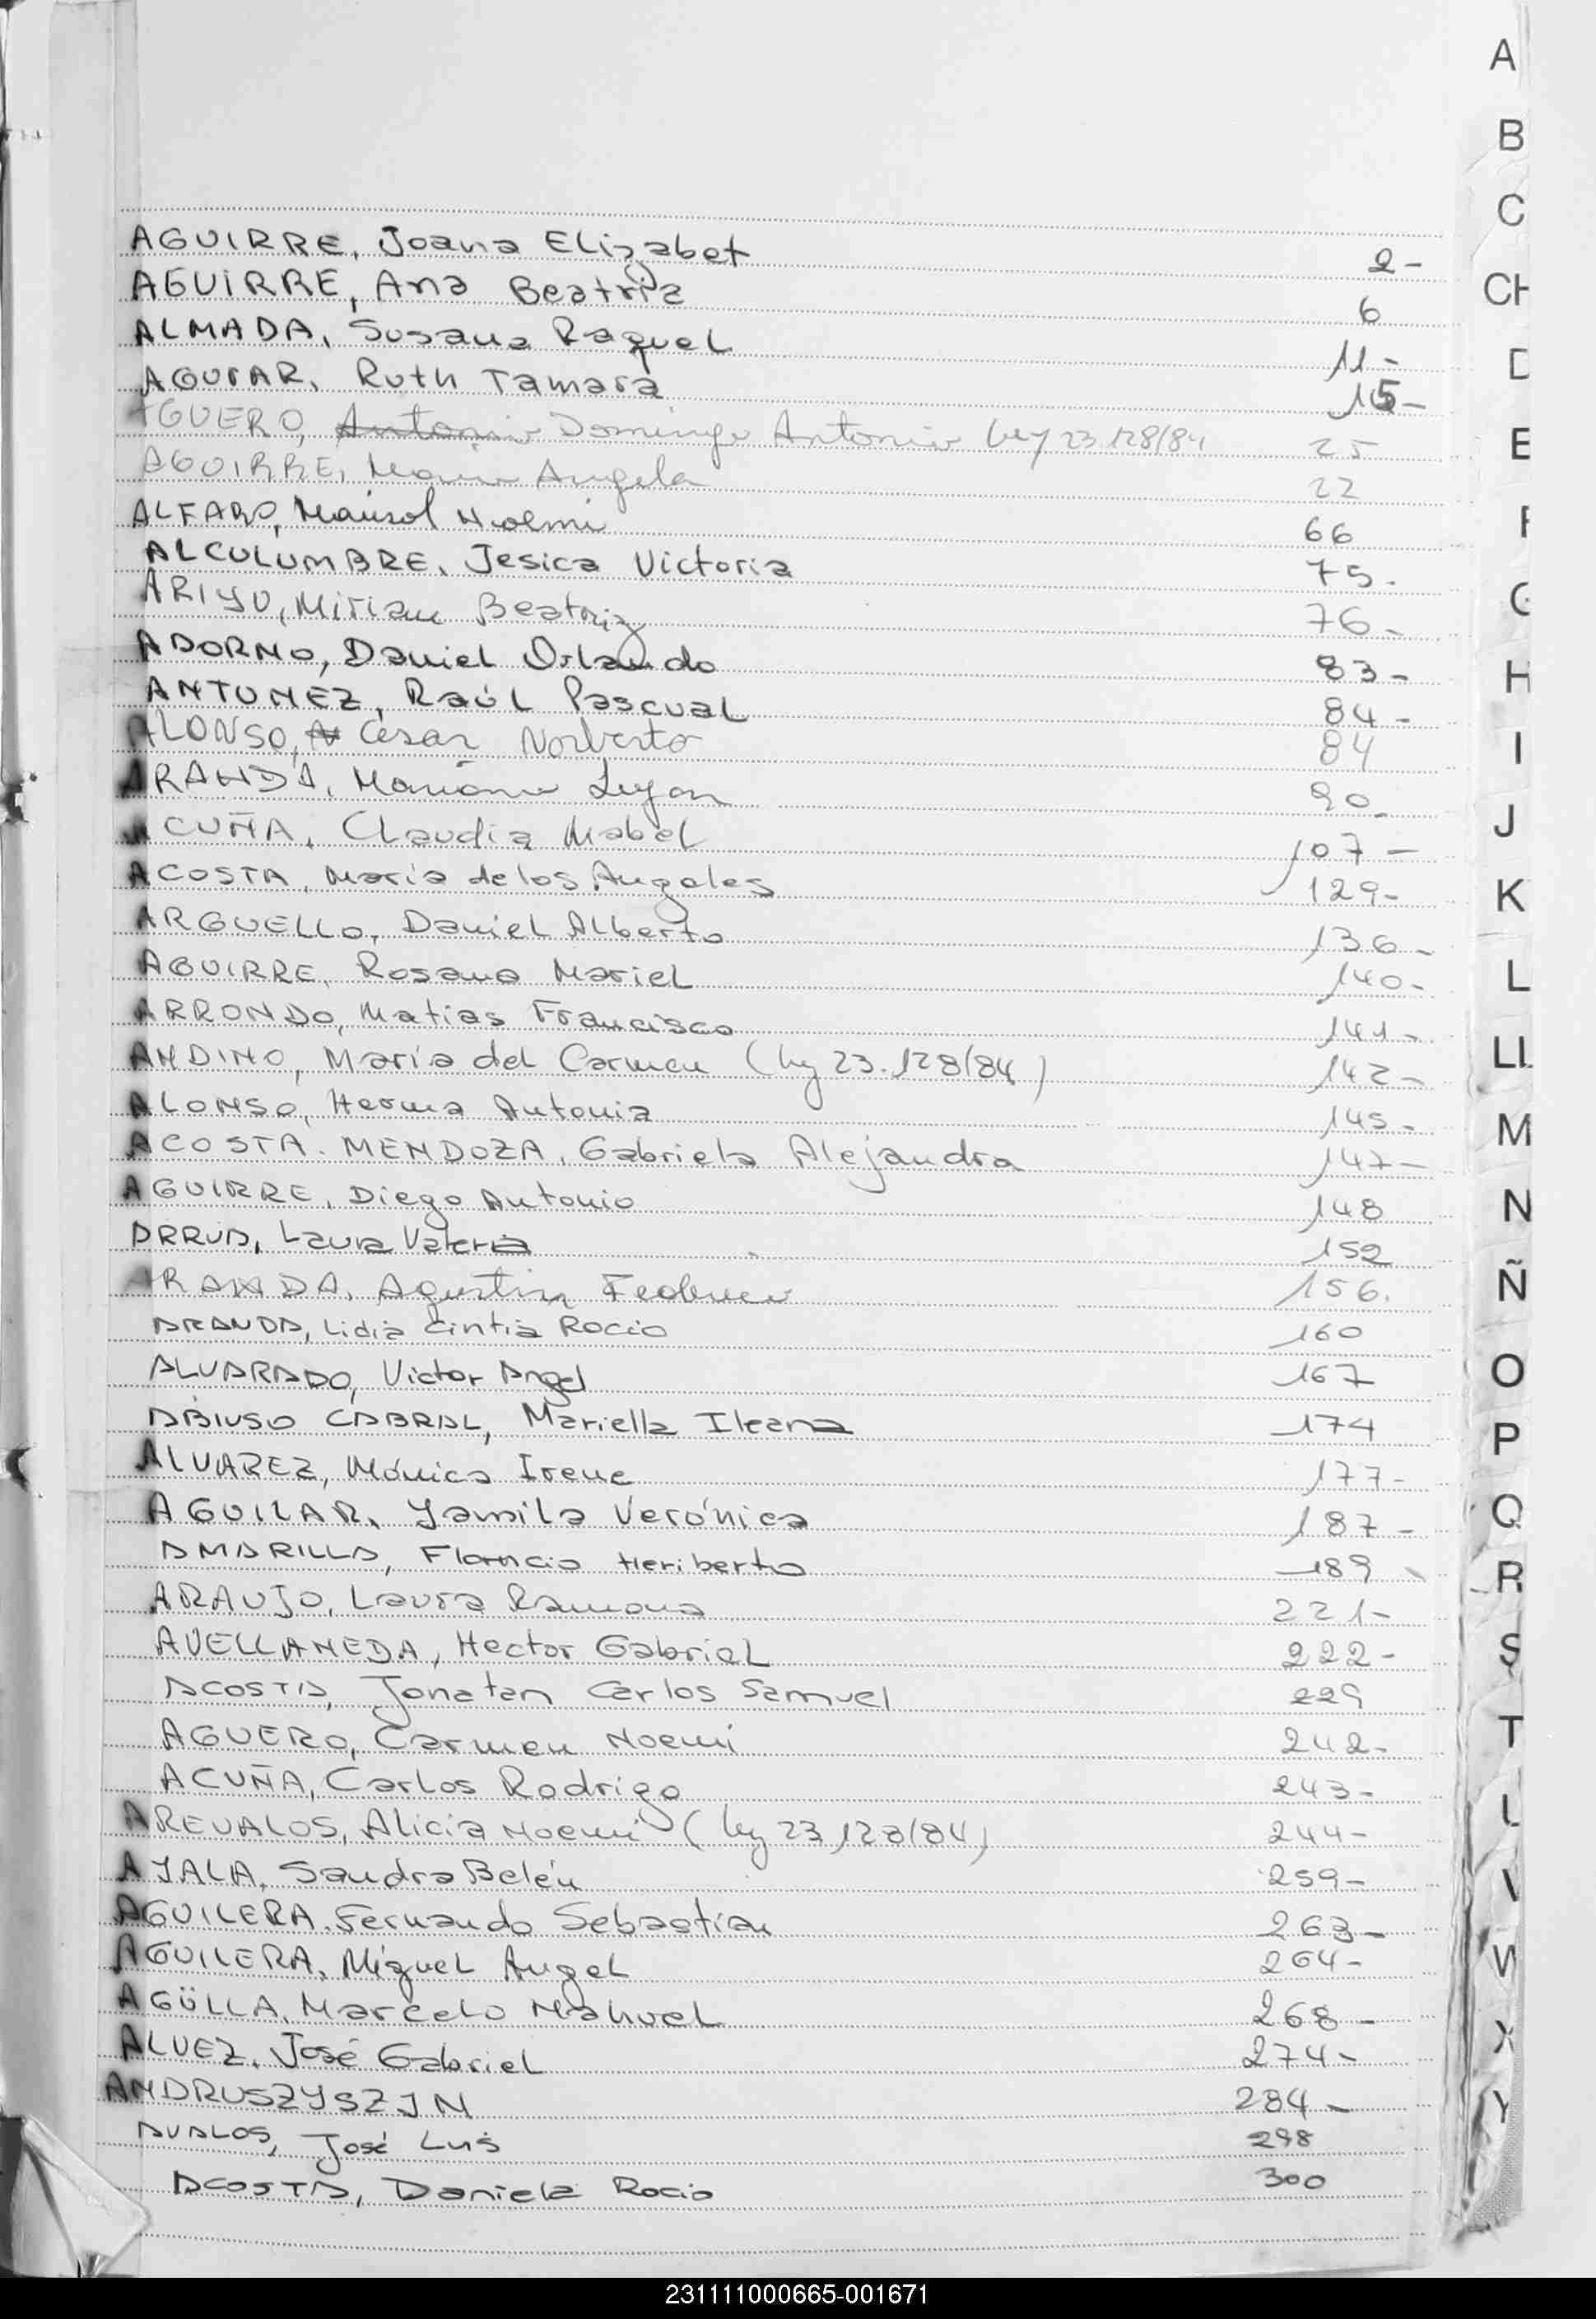 AGUIRRE, Joana Elizabet 2-
AGUIRRE, Ana Beatriz 6
ALMADA, Susana Raquel 11-
AGUIAR, Ruth Tamara 15-
AGUERO, Antonio Domingo Antonio Ley 23.128/84 25
AGUIRRE, Maria Angela 22
ALFARO, Marisol Noemi 66
ALCULUMBRE, Jesica Victoria 75-
ARIYU, Miriam Beatriz 76-
ADORNO, Daniel Orlando 83-
ANTUNEZ, Raúl Pascual 84-
ALONSO, Cesar Norberto 84
ARANDA, Mariano Lujan 90-
ACUÑA, Claudia Mabel 107-
ACOSTA, Maria de los Angeles 129-
ARGUELLO, Daniel Alberto 136-
AGUIRRE, Rosana Mariel 140-
ARRONDO, Matias Francisco 141-
ANDINO, Maria del Carmen (Ley 23.128/84) 142-
ALONSO, Herma Antonia 145-
ACOSTA MENDOZA, Gabriela Alejandra 147-
AGUIRRE, Diego Antonio 148
ARRUA, Laura Valeria 152
ARANDA, Agustin Federico 156.
ARANDA, Lidia Cintia Rocio 160
ALVARADO, Victor Angel 167
ABIUSO CABRAL, Mariella Ileana 174
ALVAREZ, Mónica Irene 177-
AGUILAR, Yamila Verónica 187-
AMARILLA, Florncio Heriberto 189
ARAUJO, Laura Ramona 221-
AVELLANEDA, Hector Gabriel 222-
ACOSTA, Jonatan Carlos Samuel 229
AGUERO, Carmen Noemi 242-
ACUÑA, Carlos Rodrigo 243-
AREVALOS, Alicia Noemi (Ley 23.128/84) 244-
AYALA, Sandra Belén 259-
AGUILERA, Fernando Sebastián 263-
AGUILERA, Miguel Angel 264-
AGÜLLA, Marcelo Mahuel 268-
ALVEZ, José Gabriel 274-
ANDRUSZYSZJN 284-
AVALOS, José Luis 298
ACOSTA, Daniela Rocio 300
A
B
C
CH
D
E
F
G
H
I
J
K
L
LL
M
N
Ñ
O
P
Q
R
S
T
V
W
X
Y
231111000665-001671